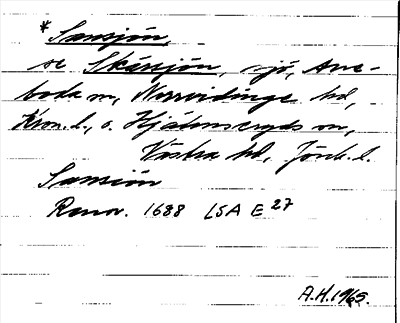 *Samsjön,
se Skärsjön, sjö, Ane-
boda sn, Norrvidinge hd,
Kron. l., o. Hjälmseryds sn,
Västra hd, Jönk. l.
Samsiön
Renov. 1688 LSA E 27
A.H. 1965.